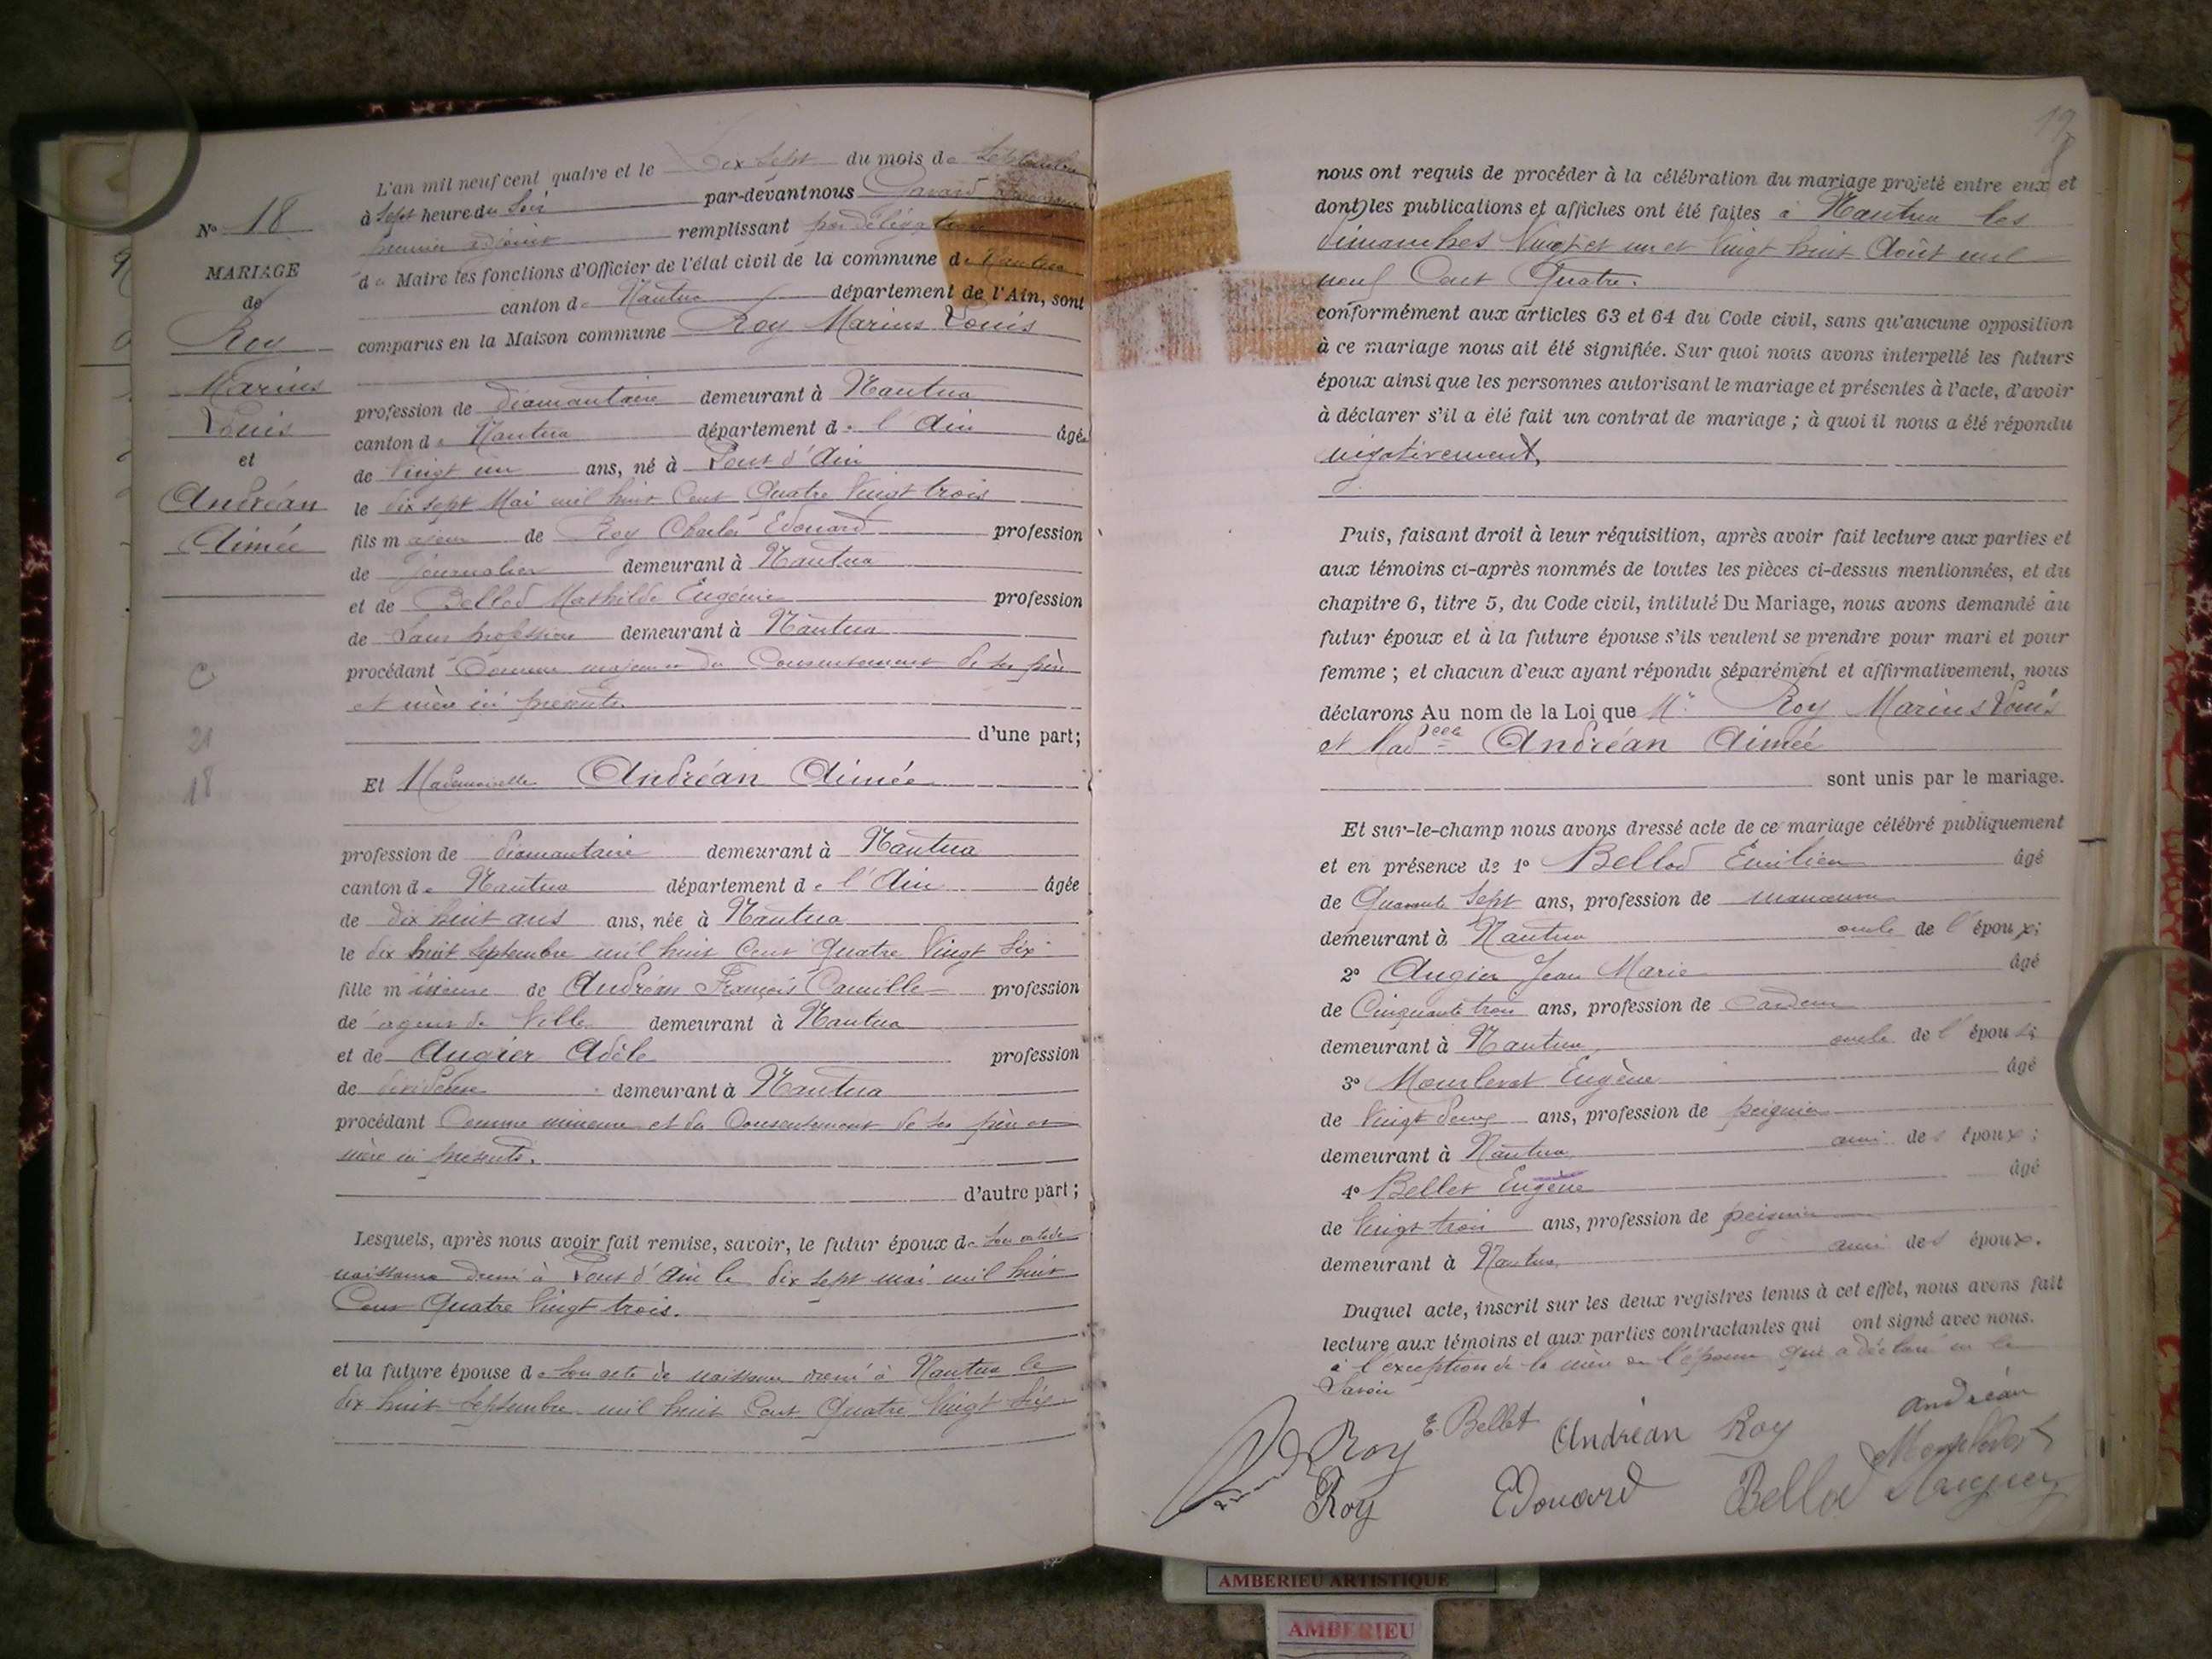 L'an mil neuf cent quatre et le Dix Sept du mois de Septembre
à Sept heure du Soir par-devant nous Gavard
premier adjoint remplissant par délégation
de Maire les fonctions d'Officier de l'état civil de la commune de Nantua
canton de Nantua département de l'Ain, sont
comparus en la Maison commune Roy Marius Louis
profession de diamantaire demeurant à Nantua
canton de Nantua département de l'Ain âgé
de Vingt un ans, né à Pont d'Ain
le dix sept Mai mil huit Cent Quatre Vingt trois
fils majeur de Roy Charles Edouard profession
de journalier demeurant à Nantua
et de Bellod Mathilde Eugénie profession
de Sans profession demeurant à Nantua
procédant Comme majeur et du Consentement de ses père
et mère ici présents.
d'une part;
Et Mademoiselle Andréan Aimée
profession de diamantaire demeurant à Nantua
canton de Nantua département de l'Ain âgée
de dix huit ans ans, née à Nantua
le dix huit Septembre mil huit Cent Quatre Vingt Six
fille mineure de Andréan François Camille profession
de agent de Ville demeurant à Nantua
et de Augier Adèle profession
de dévideuse demeurant à Nantua
procédant Comme mineure et du Consentement de ses père et
mère ici présents.
d'autre part;
Lesquels, après nous avoir fait remise, savoir, le futur époux de Son acte de
naissance dressé à Pont d'Ain le dix sept mai mil huit
Cent Quatre Vingt trois.
et la future épouse de Son acte de naissance dressé à Nantua le
dix huit Septembre mil huit Cent Quatre Vingt Six
No 18
MARIAGE
de
Roy
Marius
Louis
et
Andréan
Aimée
C
21
18
19
nous ont requis de procéder à la célébration du mariage projeté entre eux et
dont les publications et affiches ont été faites à Nantua les
dimanches Vingt et un et Vingt huit Août mil
neuf Cent Quatre.
conformément aux articles 63 et 64 du Code civil, sans qu'aucune opposition
à ce mariage nous ait été signifiée. Sur quoi nous avons interpellé les futurs
époux ainsi que les personnes autorisant le mariage et présentes à l'acte, d'avoir
à déclarer s'il a été fait un contrat de mariage; à quoi il nous a été répondu
négativement.
Puis, faisant droit à leur réquisition, après avoir fait lecture aux parties et
aux témoins ci-après nommés de toutes les pièces ci-dessus mentionnées, et du
chapitre 6, titre 5, du Code civil, intitulé Du Mariage, nous avons demandé au
futur époux et à la future épouse s'ils veulent se prendre pour mari et pour
femme; et chacun d'eux ayant répondu séparément et affirmativement, nous
déclarons Au nom de la Loi que Mr Roy Marius Louis
et Madelle Andréan Aimée
sont unis par le mariage.
Et sur-le-champ nous avons dressé acte de ce mariage célébré publiquement
et en présence de 1o Bellod Emilien âgé
de Quarante Sept ans, profession de manœuvre
demeurant à Nantua oncle de l'époux;
2o Augier Jean Marie âgé
de Cinquante trois ans, profession de
demeurant à Nantua oncle de l'épouse;
3o Mourlevat Eugène âgé
de Vingt deux ans, profession de peignier
demeurant à Nantua ami des époux;
4o Bellet Eugène âgé
de Vingt trois ans, profession de peignier
demeurant à Nantua ami des époux.
Duquel acte, inscrit sur les deux registres tenus à cet effet, nous avons fait
lecture aux témoins et aux parties contractantes qui ont signé avec nous.
à l'exception de la mère de l'époux qui a déclaré ne le
Savoir
Roy E. Bellet Andréan Roy Andréan
Roy Edouard Bellod Mourlevat Augier
AMBERIEU ARTISTIQUE
AMBERIEU